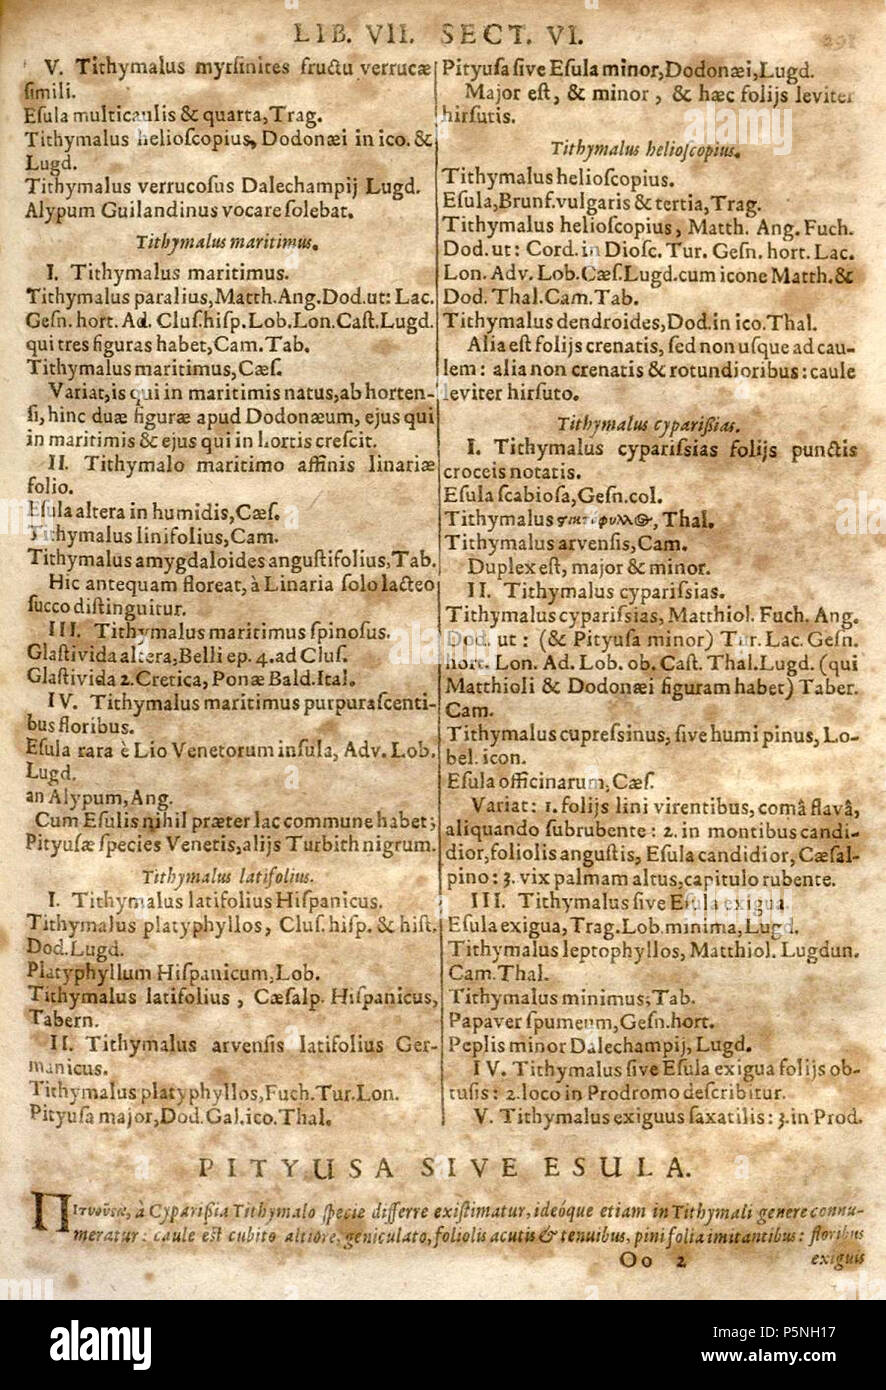 LIB. VII. SECT. VI. 291
V. Tithymalus myrſinites fructu verrucæ
ſimili.
Eſula multicaulis & quarta, Trag.
Tithymalus helioſcopius, Dodonæi in ico. &
Lugd.
Tithymalus verrucoſus Dalechampij Lugd.
Alypum Guilandinus vocare ſolebat.
Tithymalus maritimus.
I. Tithymalus maritimus.
Tithymalus paralius, Matth. Ang. Dod. ut: Lac.
Geſn. hort. Ad. Cluſ. hiſp. Lob. Lon. Caſt. Lugd.
qui tres figuras habet, Cam. Tab.
Tithymalus maritimus, Cæſ.
Variat, is qui in maritimis natus, ab horten-
ſi, hinc duæ figuræ apud Dodonæum, ejus qui
in maritimis & ejus qui in hortis creſcit.
II. Tithymalo maritimo affinis linariæ
folio.
Eſula altera in humidis, Cæſ.
Tithymalus linifolius, Cam.
Tithymalus amygdaloides anguſtifolius, Tab.
Hic antequam floreat, à Linaria ſolo lacteo
ſucco diſtinguitur.
III. Tithymalus maritimus ſpinoſus.
Glaſtivida altera, Belli ep. 4. ad Cluſ.
Glaſtivida 2. Cretica, Ponæ Bald. Ital.
IV. Tithymalus maritimus purpuraſcenti-
bus floribus.
Eſula rara è Lio Venetorum inſula, Adv. Lob.
Lugd.
an Alypum, Ang.
Cum Eſulis nihil præter lac commune habet;
Pityuſæ ſpecies Venetis, alijs Turbith nigrum.
Tithymalus latifolius.
I. Tithymalus latifolius Hiſpanicus.
Tithymalus platyphyllos, Cluſ. hiſp. & hiſt.
Dod. Lugd.
Platyphyllum Hiſpanicum, Lob.
Tithymalus latifolius, Cæſalp. Hiſpanicus,
Tabern.
II. Tithymalus arvenſis latifolius Ger-
manicus.
Tithymalus platyphyllos, Fuch. Tur. Lon.
Pityuſa major, Dod. Gal. ico. Thal.
Pityuſa ſive Eſula minor, Dodonæi, Lugd.
Major eſt, & minor, & hæc folijs leviter
hirſutis.
Tithymalus helioſcopius.
Tithymalus helioſcopius.
Eſula, Brunf. vulgaris & tertia, Trag.
Tithymalus helioſcopius, Matth. Ang. Fuch.
Dod. ut: Cord. in Dioſc. Tur. Geſn. hort. Lac.
Lon. Adv. Lob. Cæſ. Lugd. cum icone Matth. &
Dod. Thal. Cam. Tab.
Tithymalus dendroides, Dod. in ico. Thal.
Alia eſt folijs crenatis, ſed non uſque ad cau-
lem: alia non crenatis & rotundioribus: caule
leviter hirſuto.
Tithymalus cyparißias.
I. Tithymalus cypariſsias folijs punctis
croceis notatis.
Eſula ſcabioſa, Geſn. col.
Tithymalus , Thal.
Tithymalus arvenſis, Cam.
Duplex eſt, major & minor.
II. Tithymalus cypariſsias.
Tithymalus cypariſsias, Matthiol. Fuch. Ang.
Dod. ut: (& Pityuſa minor) Tur. Lac. Geſn.
hort. Lon. Ad. Lob. ob. Caſt. Thal. Lugd. (qui
Matthioli & Dodonæi figuram habet) Taber.
Cam.
Tithymalus cupreſsinus, ſive humi pinus, Lo-
bel. icon.
Eſula officinarum, Cæſ.
Variat: 1. folijs lini virentibus, comâ flavâ,
aliquando ſubrubente: 2. in montibus candi-
dior, foliolis anguſtis, Eſula candidior, Cæſal-
pino: 3. vix palmam altus, capitulo rubente.
III. Tithymalus ſive Eſula exigua.
Eſula exigua, Trag. Lob. minima, Lugd.
Tithymalus leptophyllos, Matthiol. Lugdun.
Cam. Thal.
Tithymalus minimus, Tab.
Papaver ſpumeum, Geſn. hort.
Peplis minor Dalechampij, Lugd.
IV. Tithymalus ſive Eſula exigua folijs ob-
tuſis: 2. loco in Prodromo deſcribitur.
V. Tithymalus exiguus ſaxatilis: 3. in Prod.
PITYUSA SIVE ESULA.
Πιτυοῦσα, à Cyparißia Tithymalo ſpecie differre exiſtimatur, ideóque etiam in Tithymali genere connu-
meratur: caule eſt cubito altiore, geniculato, foliolis acutis & tenuibus, pini folia imitantibus: floribus
Oo 2 exiguis
alamy
Image ID: P5NH17
www.alamy.com